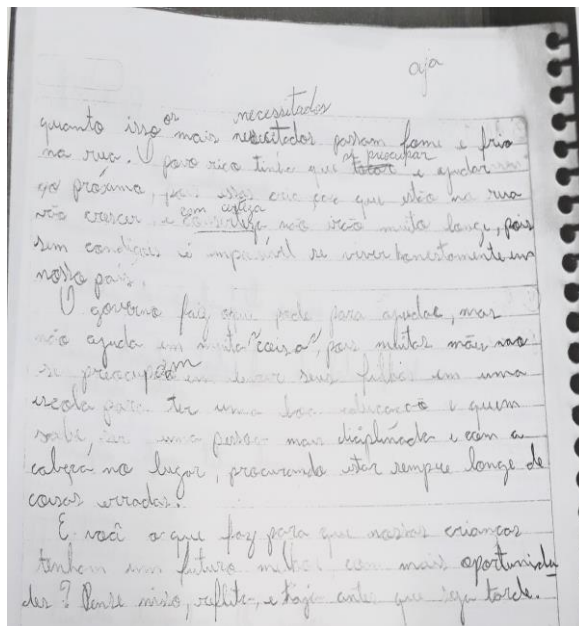 aja
os necessitados
quanto isso mais necesitados passam fome e frio
se preocupar
na rua. O povo rico tinha que tocar e ajudar
ao próximo, pois essas crianças que estão na rua
com certeza
vão crescer e conserteza não irão muito longe, pois
sem condições é impossível se viver honestamente em
nosso pais.
O governo faiz oque pode para ajudar, mas
não ajuda em muita "coisa", pois muitas mães nao
se preocupam em levar seus filhos em uma
escola para ter uma boa educação e quem
sabe, ser uma pessoa mais diciplinada e com a
cabeça no lugar, procurando estar sempre longe de
coisas erradas.
E você o que faz para que nossas crianças
tenham um futuro melhor com mais oportunida
des? Pense nisso, reflita, e haja antes que seja tarde.